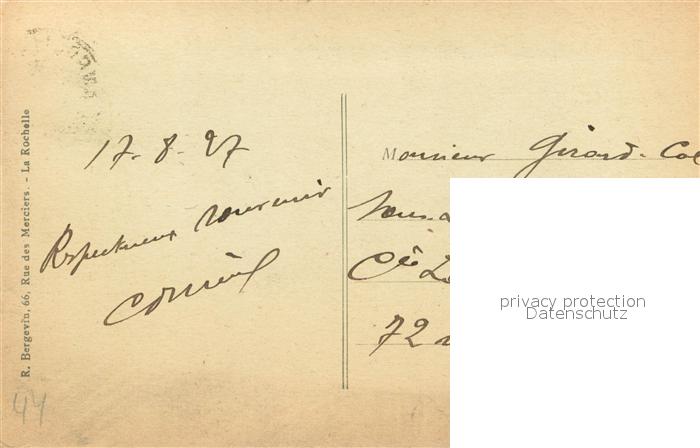 R. Bergevin, 66, Rue des Merciers. - La Rochelle
17-8-27
Respectueux souvenir
Monsieur Girard-Col
Cie
72
privacy protection
Datenschutz
44